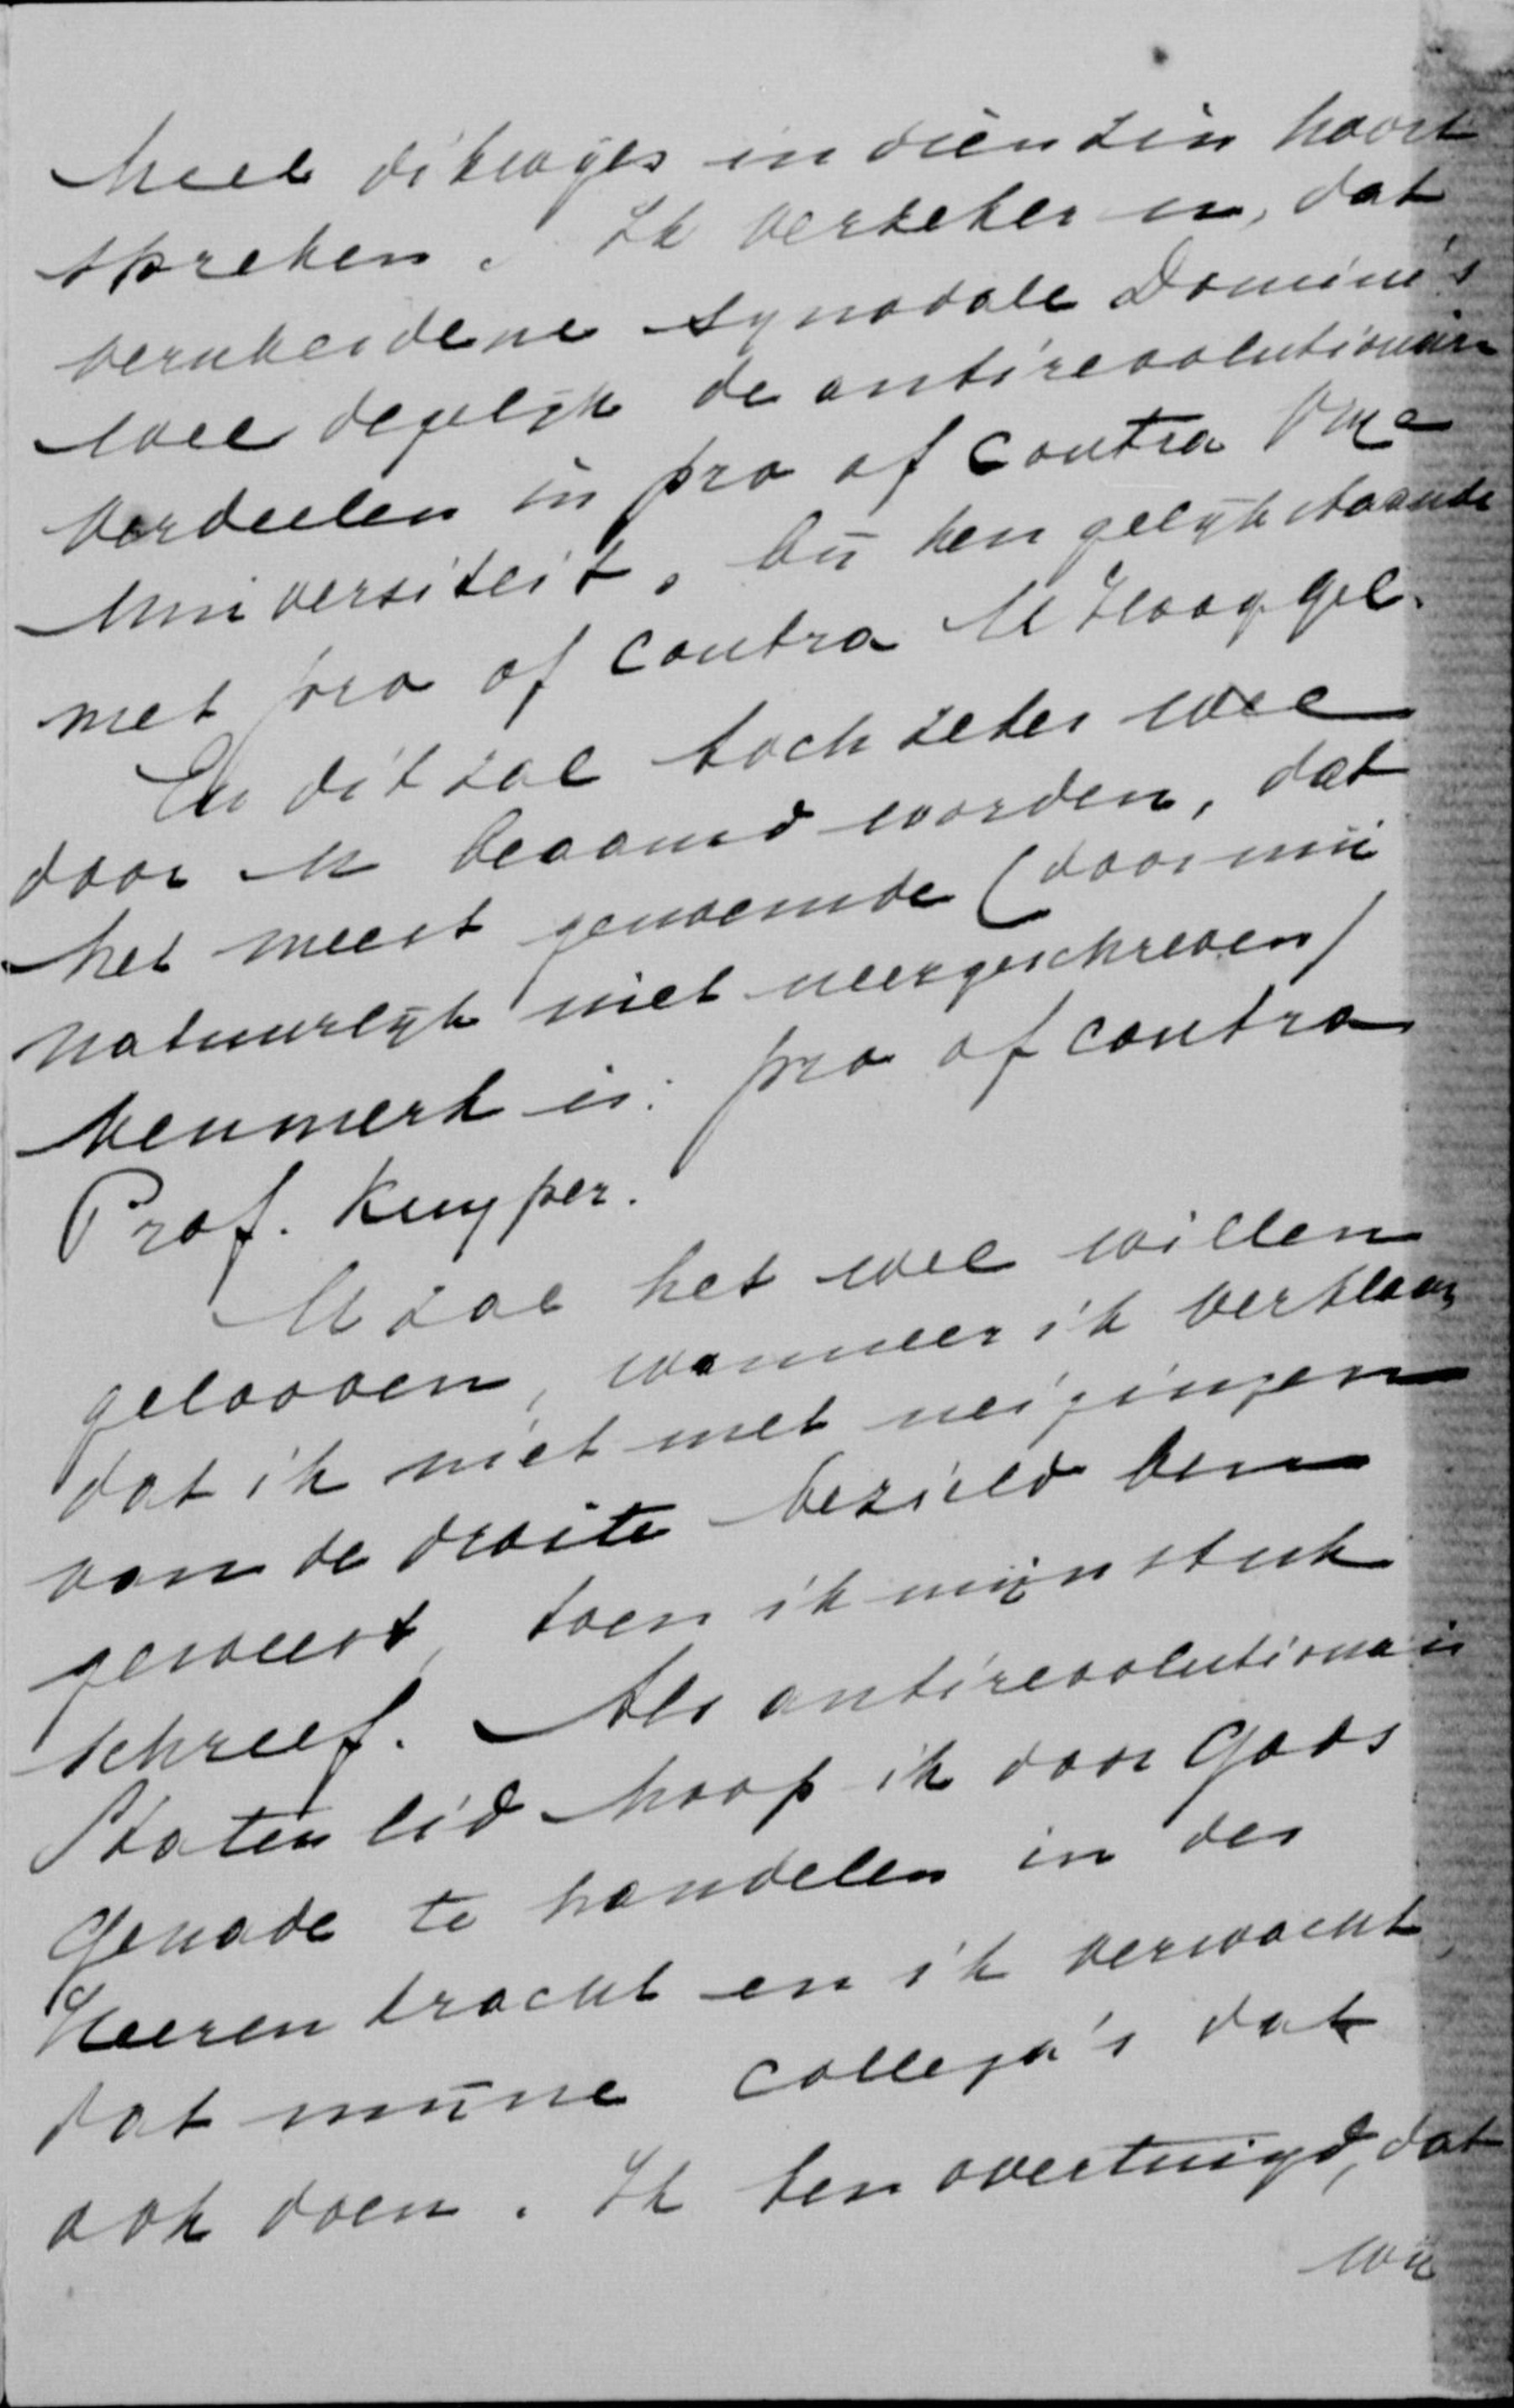 heel dikwijls in dien zin hoort
spreken. Ik verzeker u, dat
verscheidene synodale Dominé's
wel degelijk de antirevolutionairen
verdeelen in pro of contra Vrije
Universiteit, bij hen gelijkstaande
met pro of contra UHooggel.
En dit zal toch zeker wel
door U beaamd worden, dat
het meest genoemde (door mij
natuurlijk niet neergeschreven)
kenmerk is: pro of contra
Prof. Kuyper.
U zal het wel willen
gelooven, wanneer ik verklaar,
dat ik niet met neigingen
van de droite bezield ben
geweest, toen ik mijn stuk
schreef. Als antirevolutionair
Statenlid hoop ik door Gods
Genade te handelen in des
Heeren kracht en ik verwacht,
dat mijne collega's dat
ook doen. Ik ben overtuigd, dat
wij